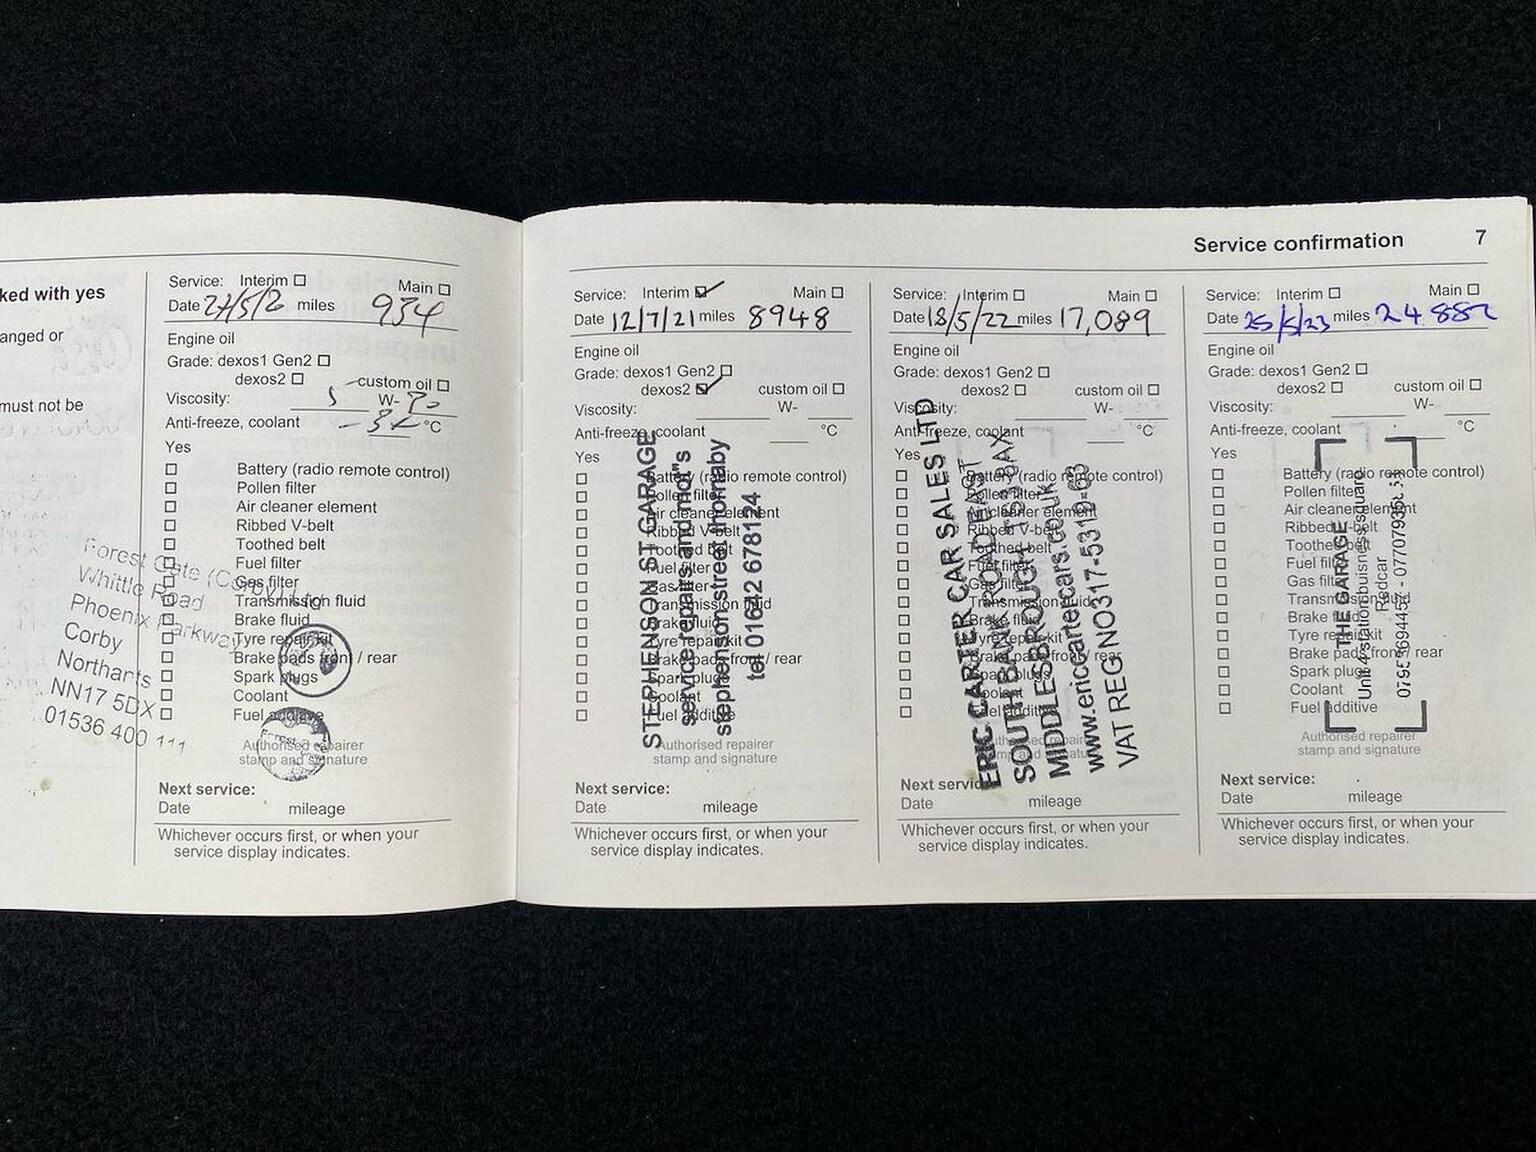 Service confirmation 7
ked with yes
anged or
must not be
Service: Interim Main
Date miles 934
Engine oil
Grade: dexos1 Gen2
dexos2 custom oil
Viscosity: 5 W-
Anti-freeze, coolant °C
Yes
Battery (radio remote control)
Pollen filter
Air cleaner element
Ribbed V-belt
Toothed belt
Fuel filter
Gas filter
Transmission fluid
Brake fluid
Tyre repair kit
Brake pads front / rear
Spark plugs
Coolant
Fuel additive
Authorised repairer
stamp and signature
Forest Gate (Corby) Ltd
Whittle Road
Phoenix Parkway
Corby
Northants
NN17 5DX
01536 400 111
Next service:
Date mileage
Whichever occurs first, or when your
service display indicates.
Service: Interim Main
Date 12/7/21 miles 8948
Engine oil
Grade: dexos1 Gen2
dexos2 custom oil
Viscosity: W-
Anti-freeze, coolant °C
Yes
Battery (radio remote control)
Pollen filter
Air cleaner element
Ribbed V-belt
Toothed belt
Fuel filter
Gas filter
Transmission fluid
Brake fluid
Tyre repair kit
Brake pads front / rear
Spark plugs
Coolant
Fuel additive
Authorised repairer
stamp and signature
STEPHENSON ST GARAGE
service repairs and mot"s
stephenson street thornaby
tel 01642 678124
Next service:
Date mileage
Whichever occurs first, or when your
service display indicates.
Service: Interim Main
Date 18/5/22 miles 17,089
Engine oil
Grade: dexos1 Gen2
dexos2 custom oil
Viscosity: W-
Anti-freeze, coolant °C
Yes
Battery (radio remote control)
Pollen filter
Air cleaner element
Ribbed V-belt
Toothed belt
Fuel filter
Gas filter
Transmission fluid
Brake fluid
Tyre repair kit
Brake pads front / rear
Spark plugs
Coolant
Fuel additive
Authorised repairer
stamp and signature
ERIC CARTER CAR SALES LTD
SOUTH BANK ROAD EAST
MIDDLESBROUGH 8AX
www.ericcartercars.co.uk
VAT REG NO317-5310-63
Next service:
Date mileage
Whichever occurs first, or when your
service display indicates.
Service: Interim Main
Date 25/5/23 miles 24882
Engine oil
Grade: dexos1 Gen2
dexos2 custom oil
Viscosity: W-
Anti-freeze, coolant °C
Yes
Battery (radio remote control)
Pollen filter
Air cleaner element
Ribbed V-belt
Toothed belt
Fuel filter
Gas filter
Transmission fluid
Brake fluid
Tyre repair kit
Brake pads front / rear
Spark plugs
Coolant
Fuel additive
Authorised repairer
stamp and signature
THE GARAGE
Unit 4 station buisness square
Redcar
Next service:
Date mileage
Whichever occurs first, or when your
service display indicates.